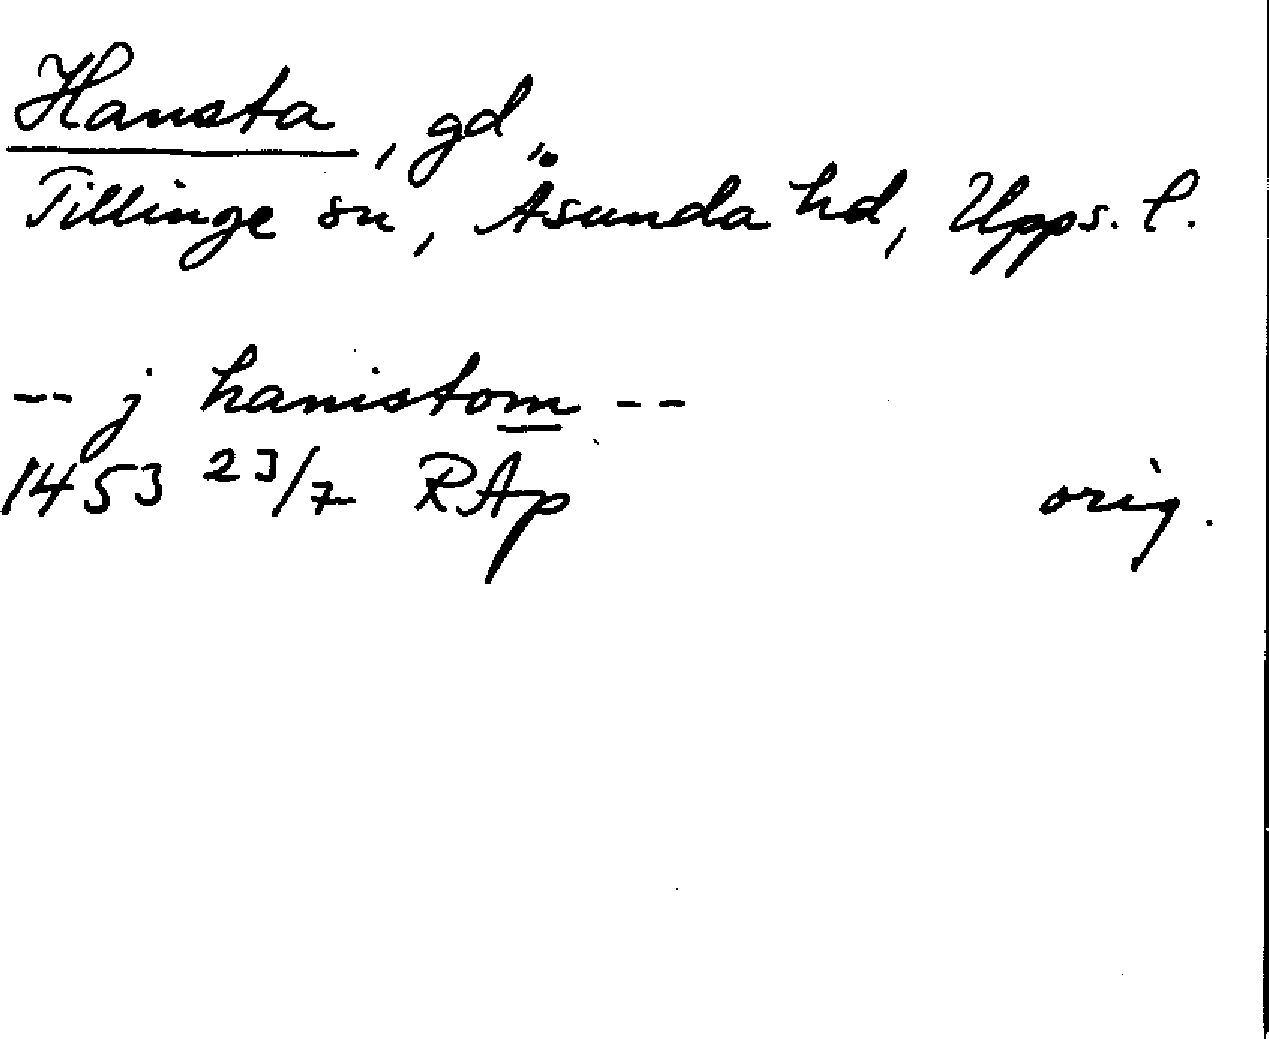 Hansta, gd,
Tillinge sn, Åsunda hd, Upps. l.
-- j hanistom --
1453 23/7 RAp orig.